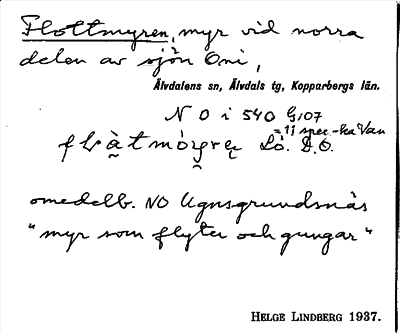 Flottmyren, myr vid norra
delen av sjön Oni,
Älvdalens sn, Älvdals tg, Kopparbergs län.
N O i 540 G,07
Lö. D.O.
omedelb. NO Ugnsgrundsnäs
"myr som flyter och gungar"
HELGE LINDBERG 1937.